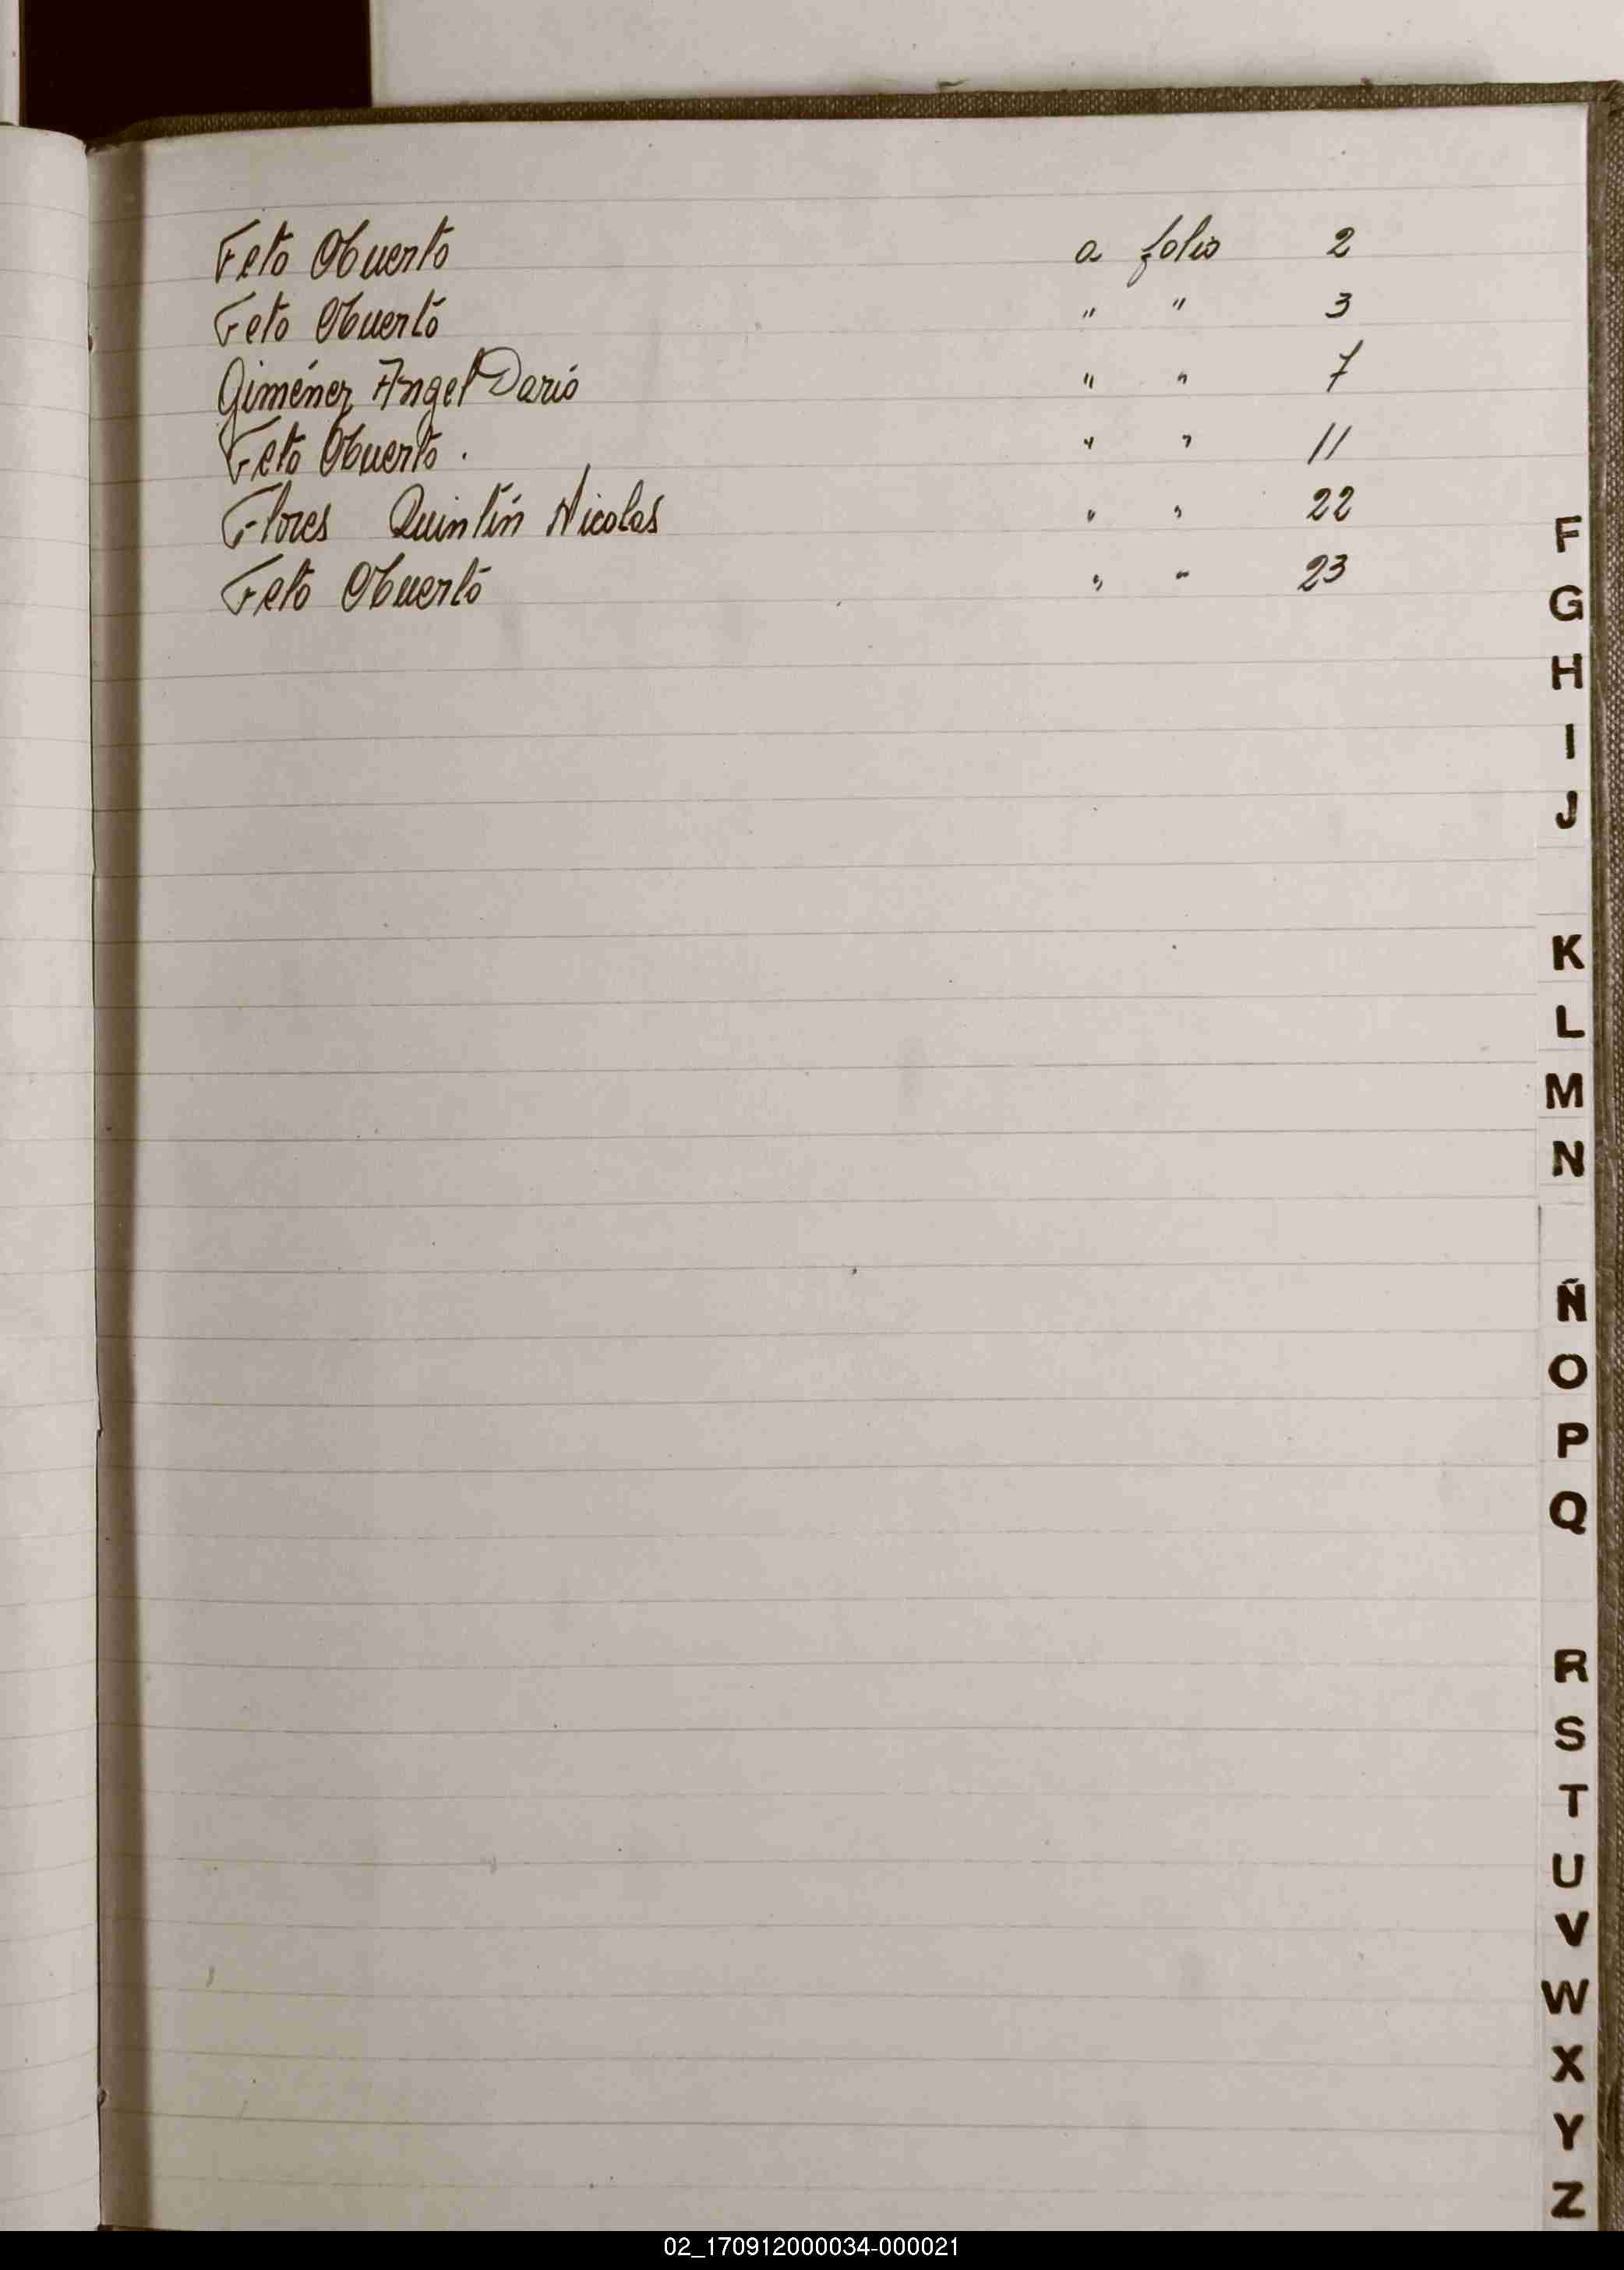 Feto Muerto a folio 2
Feto Muerto " " 3
Giménez Angel Dario " " 7
Feto Muerto . " " 11
Flores Quintín Nicolas " " 22
Feto Muerto " " 23
F
G
H
I
J
K
L
M
N
Ñ
O
P
Q
R
S
T
U
V
W
X
Y
Z
02_170912000034-000021